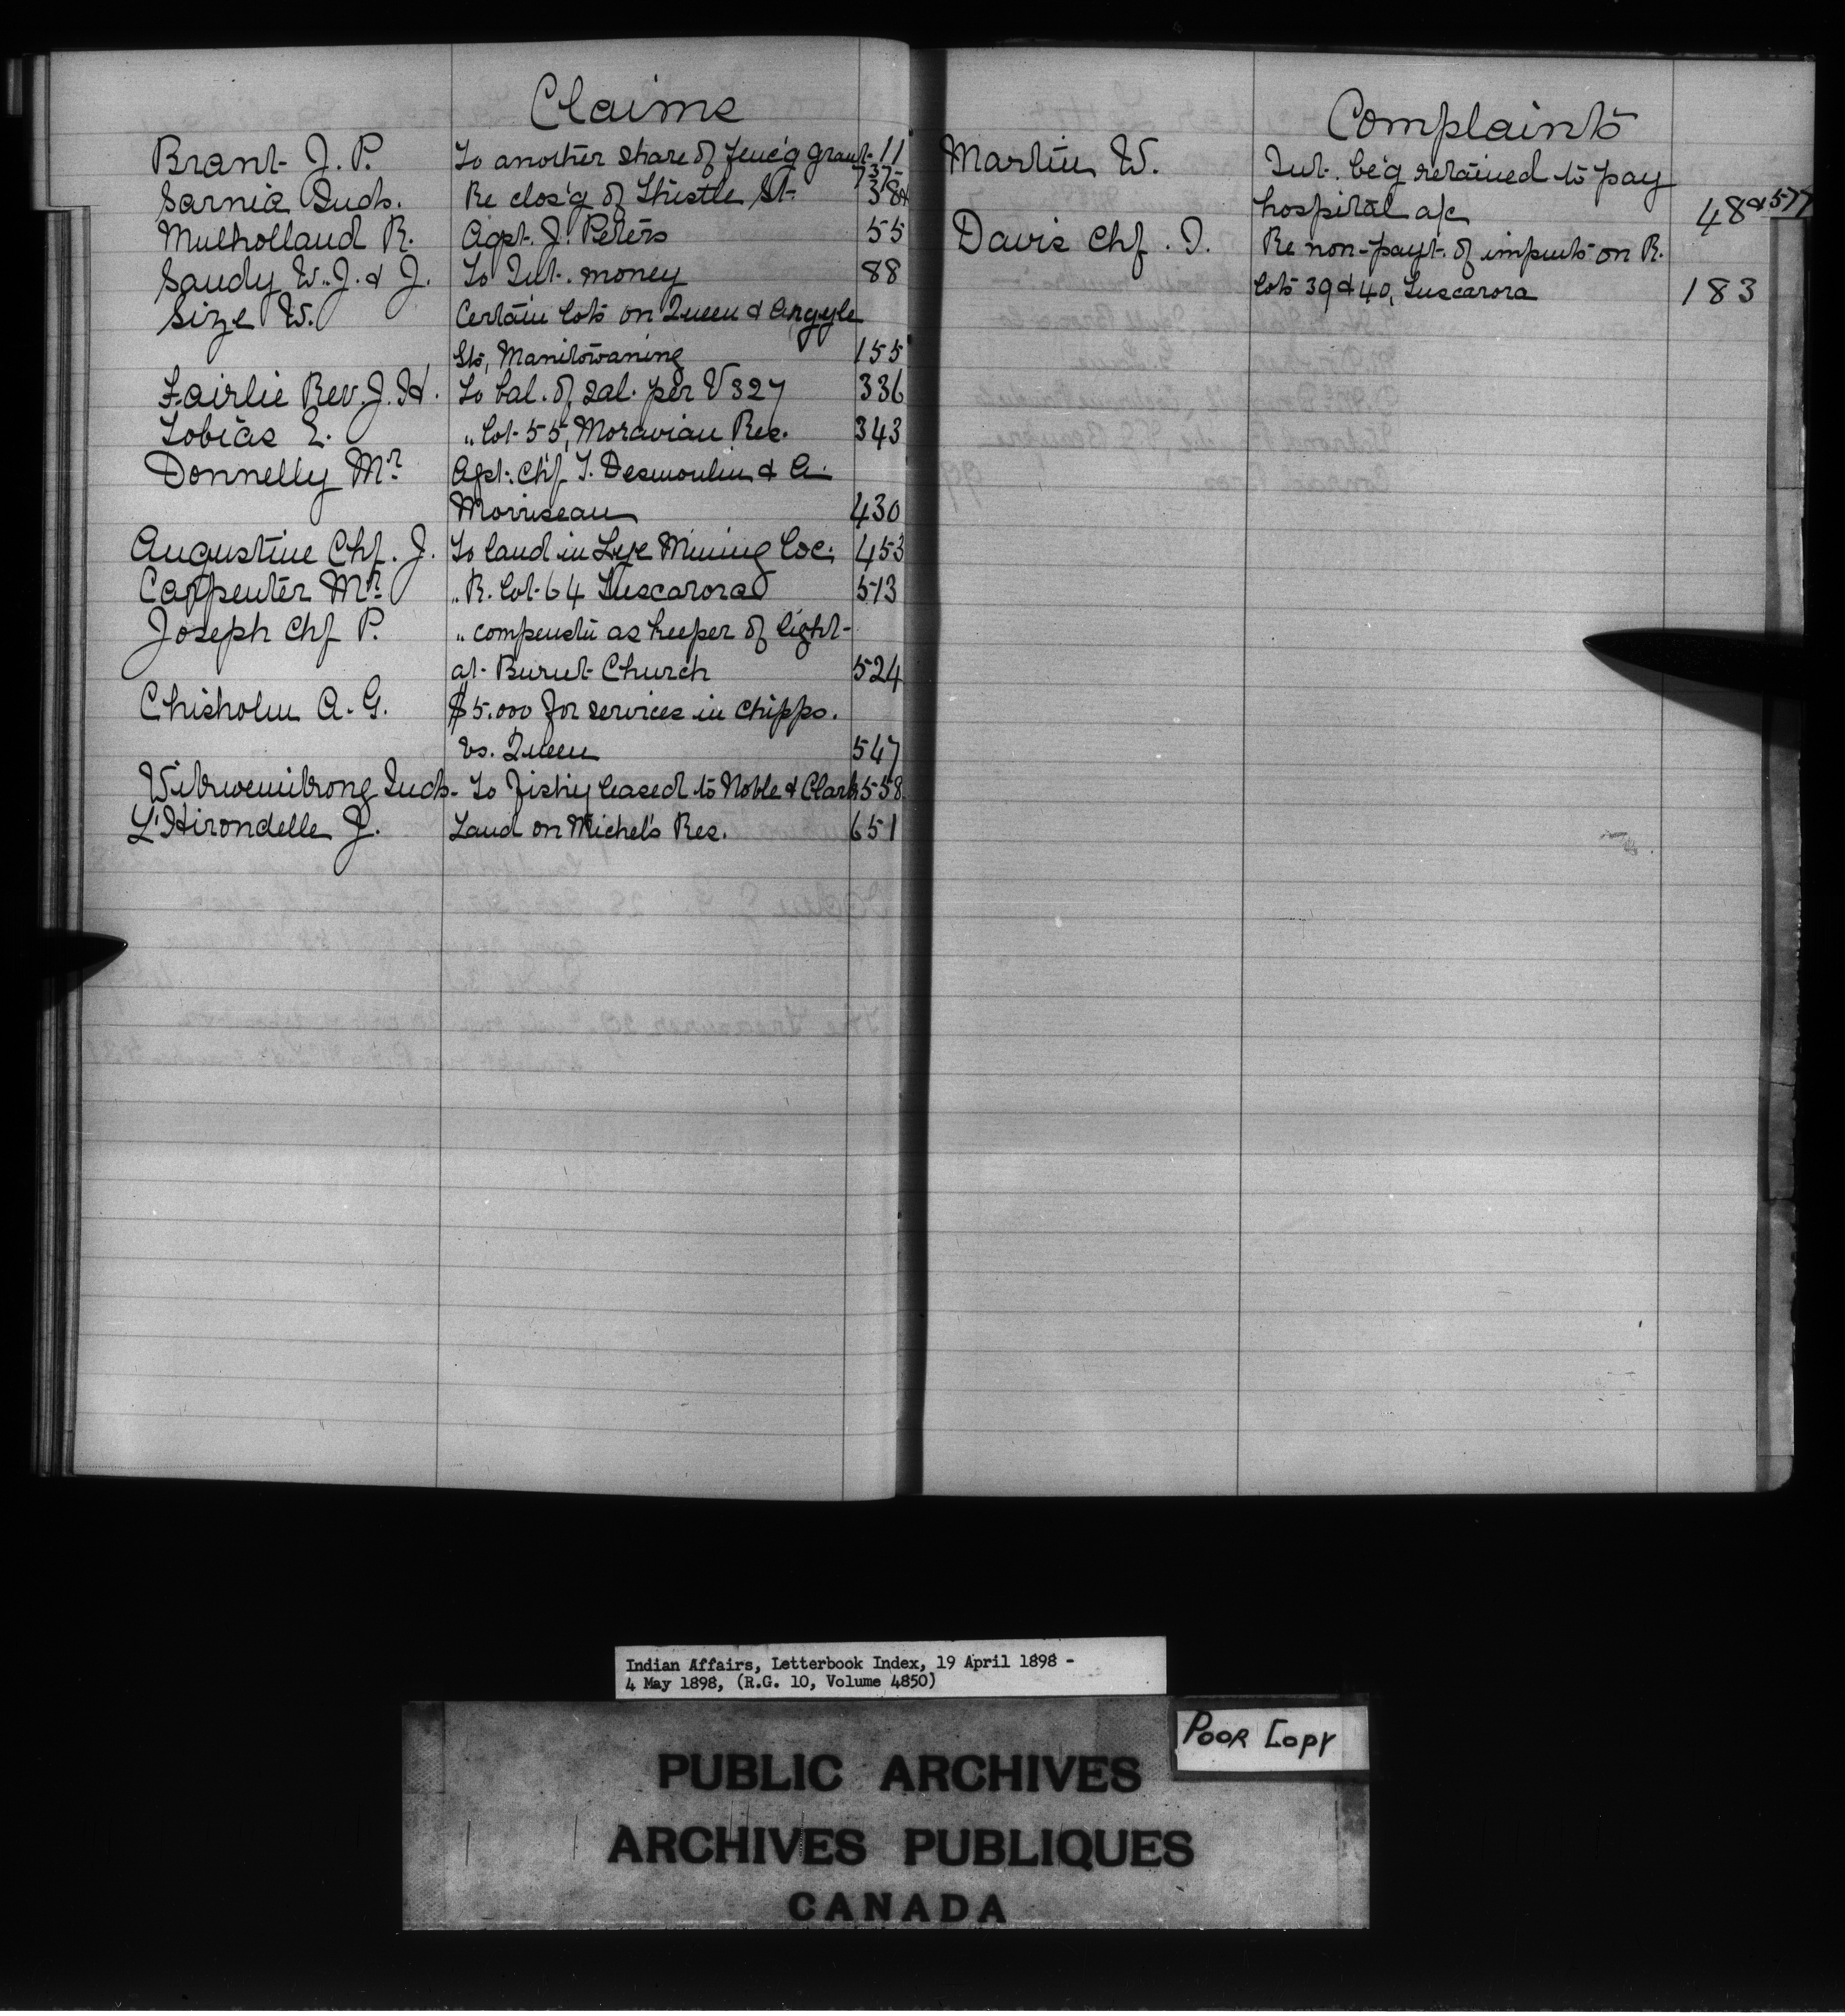 Claims
Brant J. P. To another share of fenc'g grant 11
Sarnia Inds. Re clos'g of Thistle St. 737 38 &
Mulholland R. Agst. J. Peters 55
Sandy W. J. & J. To Int. money 88
Size W. Certain lots on Queen & Argyle
Sts, Manitowaning 155
Fairlie Rev. J. H. To bal. of sal. per V 327 336
Tobias E. " lot 55, Moravian Res. 343
Donnelly Mr. Agst. Chf. I. Desmoulin & A.
Morriseau 430
Augustine Chf. J. To land in Lye Mining Loc. 453
Carpenter Mr. " R. lot 64 Tuscarora 513
Joseph Chf P. " compenstn as keeper of light
at Burnt Church 524
Chisholm A. G. $5.000 for services in Chipps.
vs. Queen 547
Wikwemikong Inds. To fishy leased to Noble & Clark 558
L'Hirondelle J. Land on Michel's Res. 651
Complaints
Martin W. Int. be'g retained to pay
hospital a/c 48 & 577
Davis Chf. I. Re non-payt. of impvts on R.
lots 39 & 40, Tuscarora 183
Indian Affairs, Letterbook Index, 19 April 1898 -
4 May 1898, (R.G. 10, Volume 4850)
Poor Copy
PUBLIC ARCHIVES
ARCHIVES PUBLIQUES
CANADA